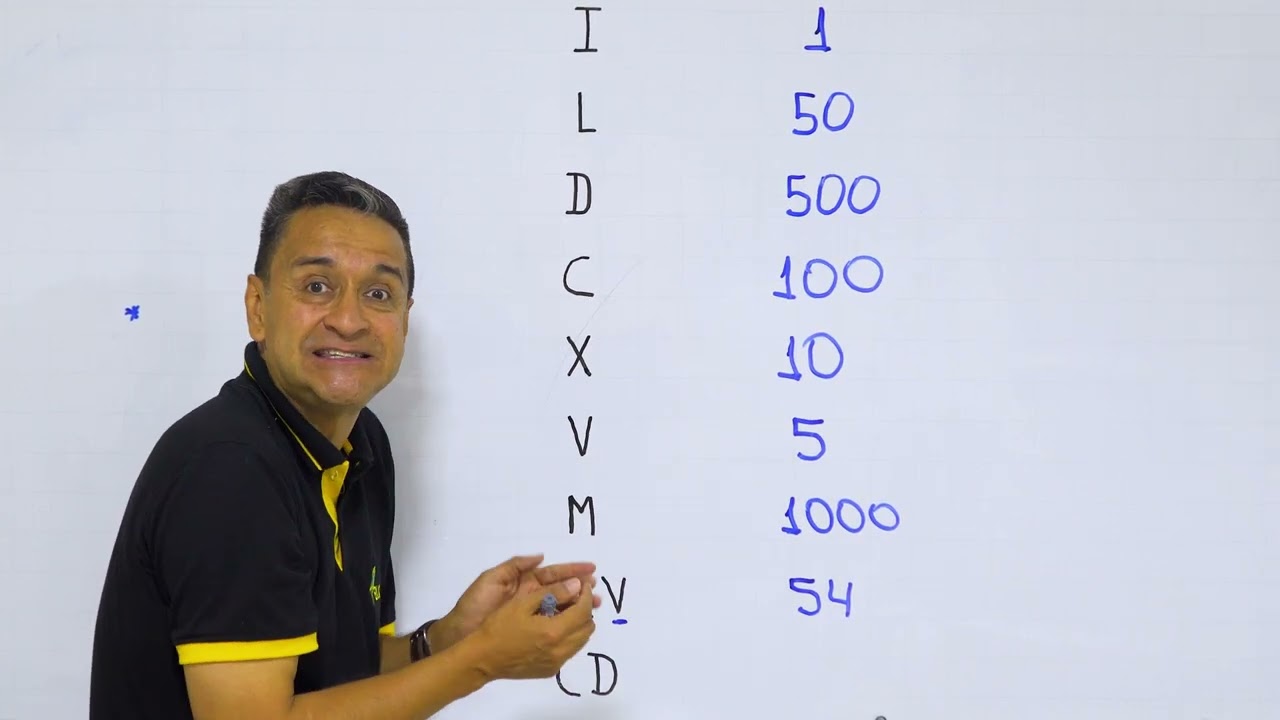 I 1
L 50
D 500
C 100
X 10
V 5
M 1000
V 54
CD